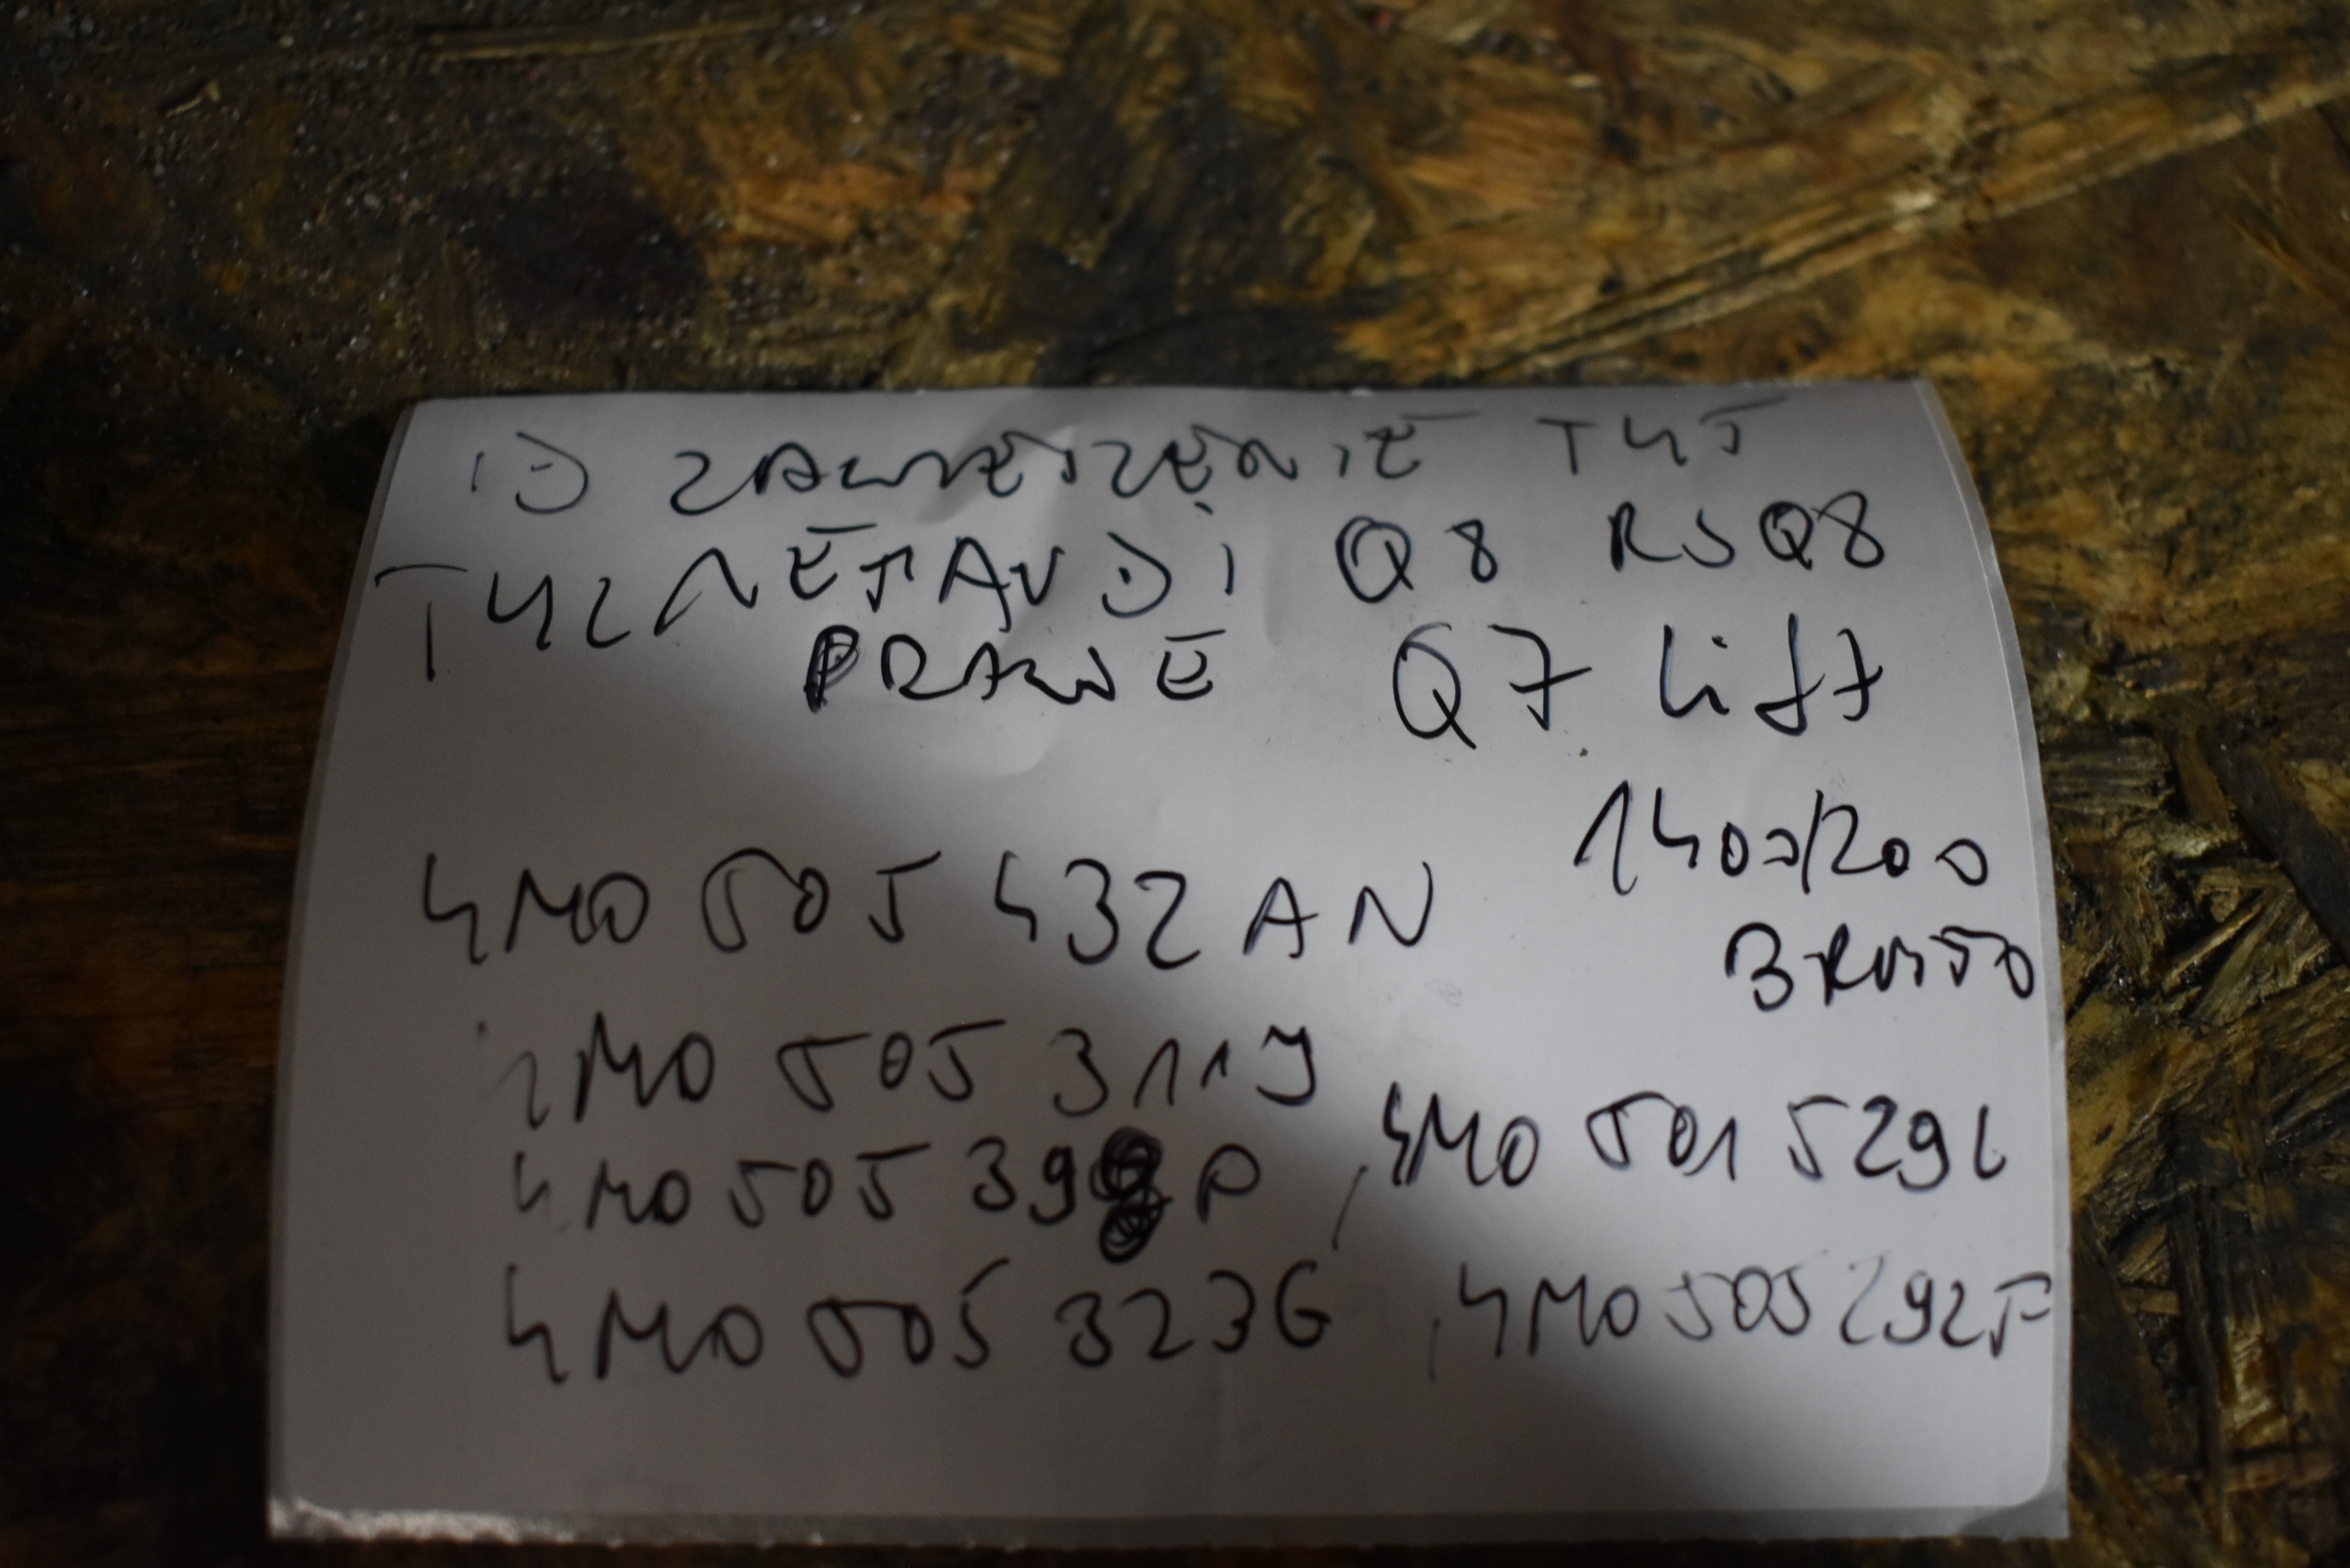 ZAWIESZENIE TYŁ
TYLNE AUDI Q8 RSQ8
PRAWE Q7 Lift
1400/200
4M0 505 432 AN
4M0 505 311 J
4M0 501 529L
4M0 505 39 P
4M0 505 323G , 4M0 505 292F